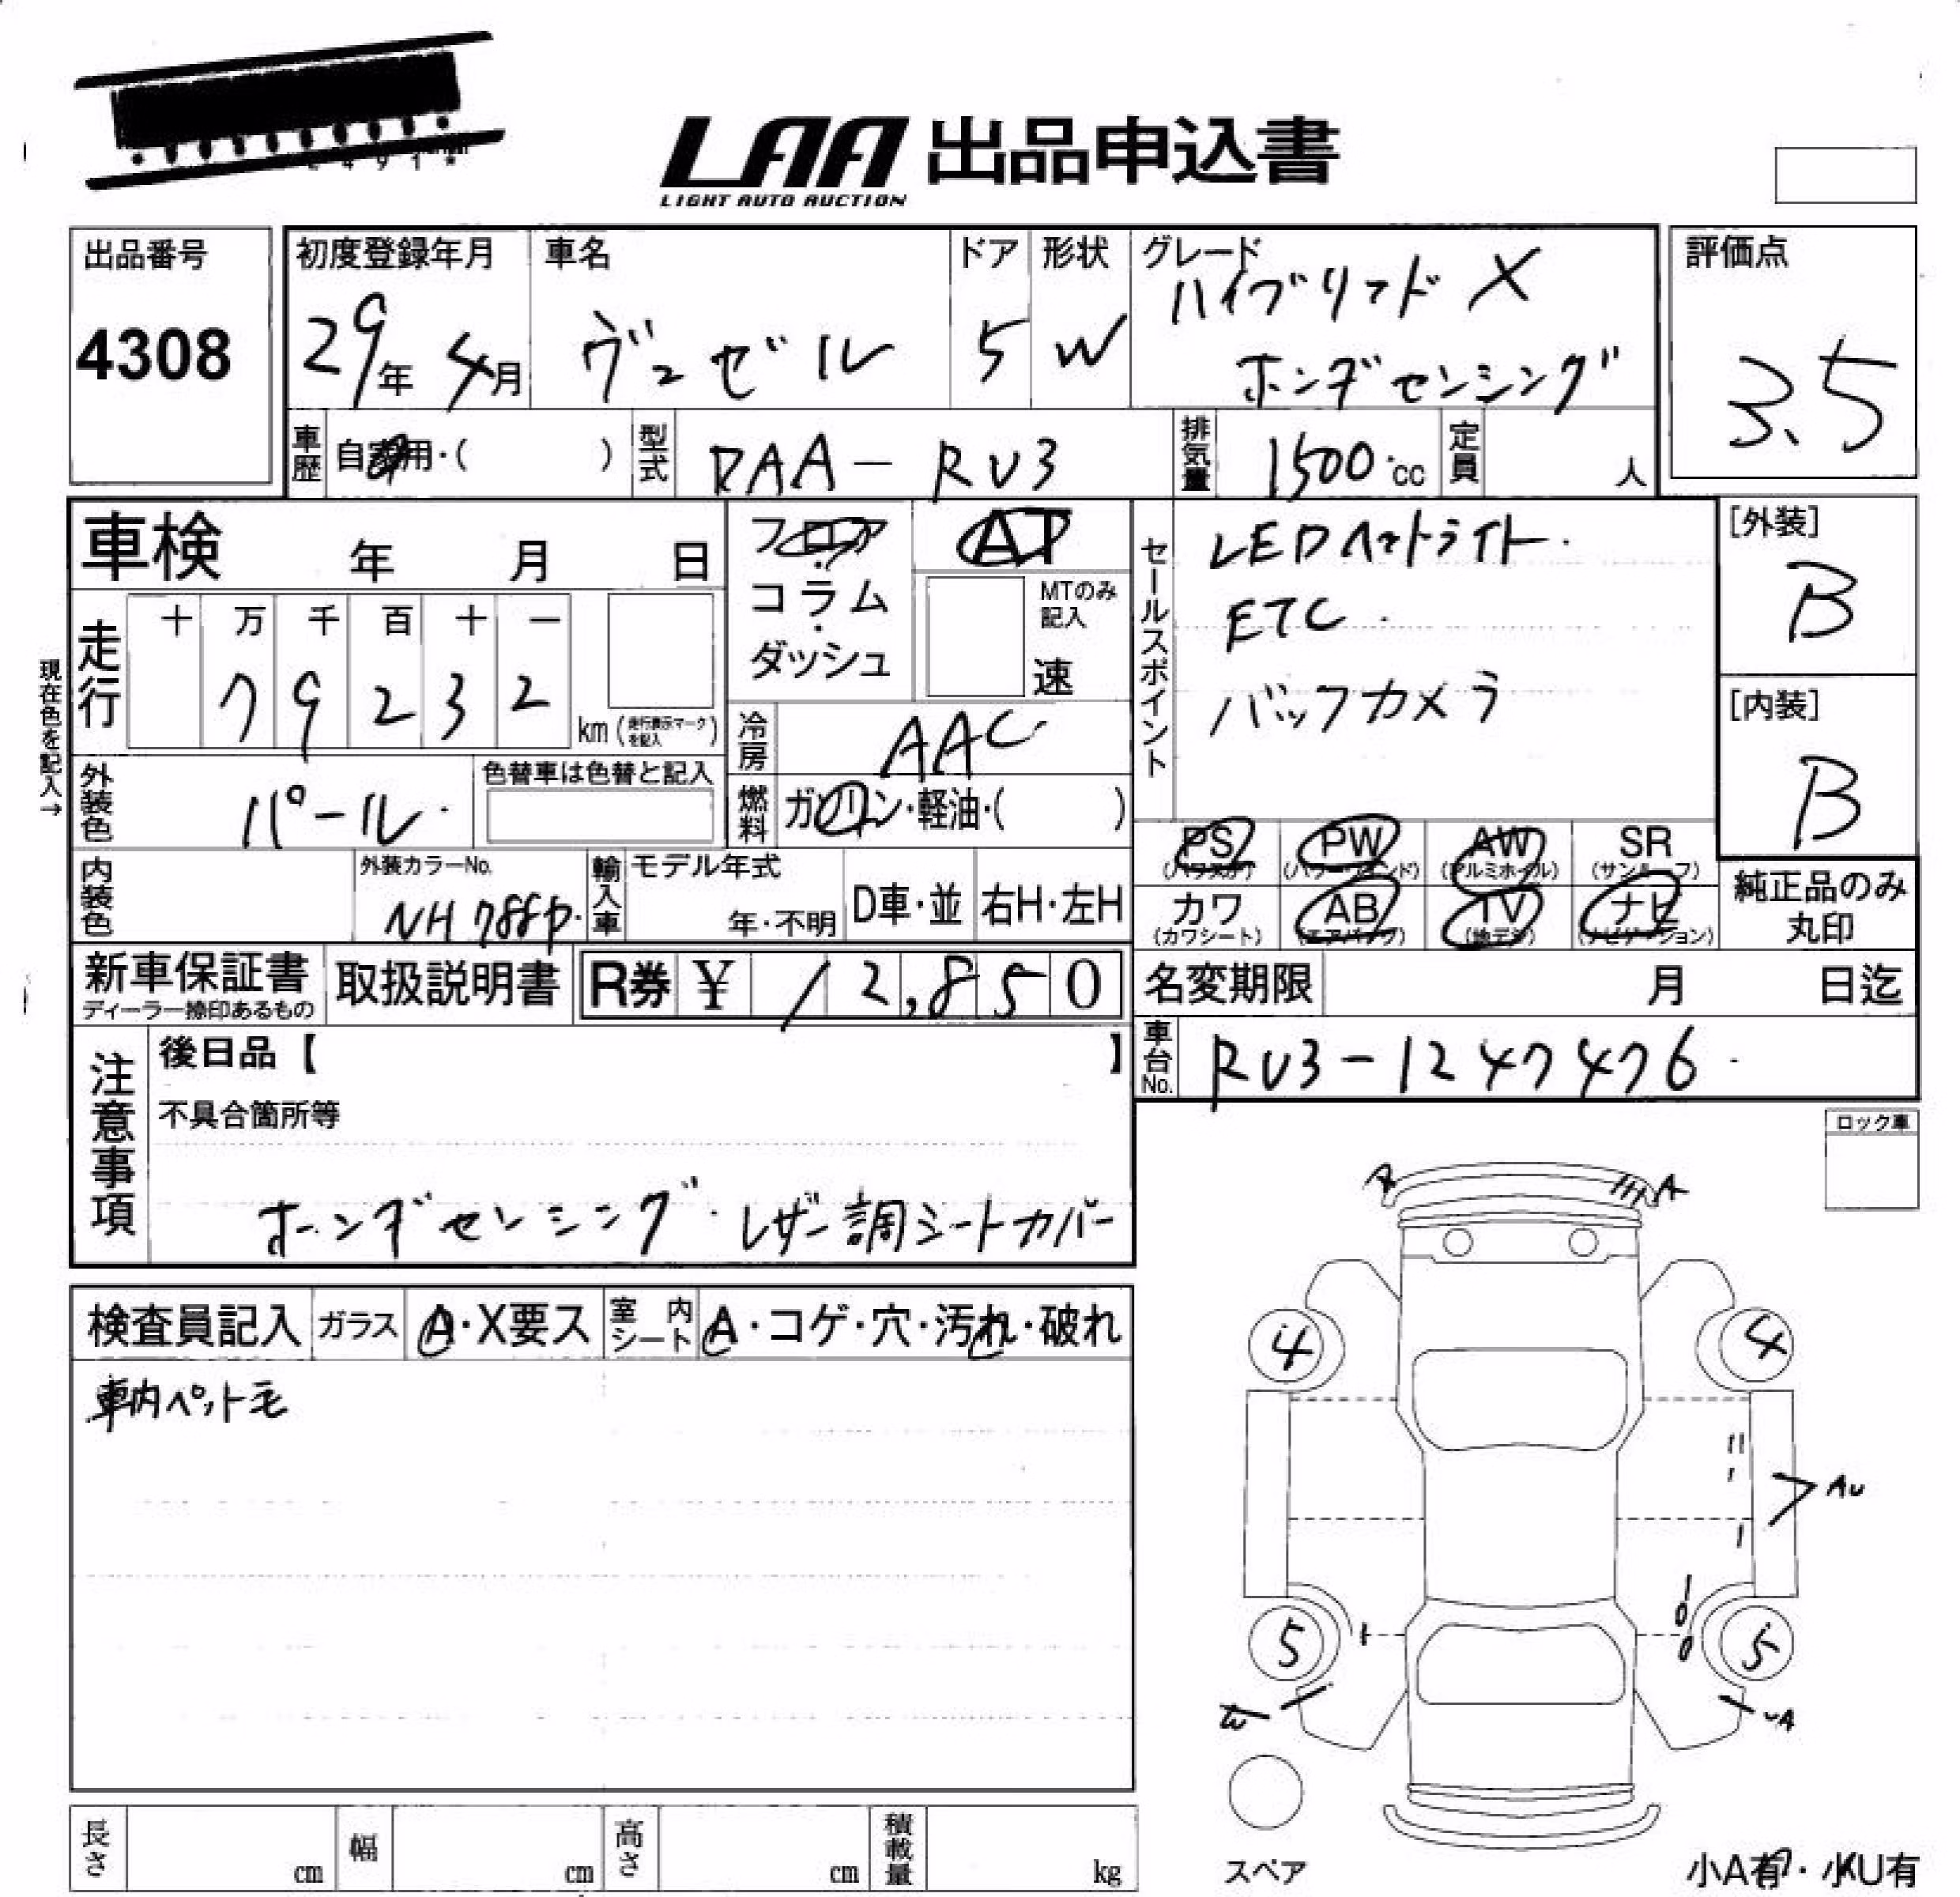 LAA 出品申込書
LIGHT AUTO AUCTION
出品番号
4308
初度登録年月
29年 4月
車名
ヴェゼル
ドア
5
形状
W
グレード
ハイブリッド X
ホンダセンシング
評価点
3.5
車歴
自家用・( )
型式
DAA-RU3
排気量
1500cc
定員
人
車検 年 月 日
フロア
・
コラム
・
ダッシュ
AT
MTのみ
記入
速
セールスポイント
LEDヘッドライト.
ETC.
バックカメラ
[外装]
B
[内装]
B
現在色を記入→
走行
十 万 千 百 十 一
7 9 2 3 2
km (走行表示マークを記入)
冷房
AAC
外装色
パール.
色替車は色替と記入
燃料
ガソリン・軽油・( )
PS PW AW SR
(パワステ) (パワーウインド) (アルミホイル) (サンルーフ)
カワ AB TV ナビ
(カワシート) (エアバッグ) (地デジ) (ナビゲーション)
純正品のみ
丸印
内装色
外装カラーNo.
NH788P.
輸入車
モデル年式
年・不明
D車・並
右H・左H
新車保証書
ディーラー捺印あるもの
取扱説明書
R券 ¥ 12,850
名変期限 月 日迄
車台No.
RU3-1247476
注意事項
後日品【 】
不具合箇所等
ホンダセンシング. レザー調シートカバー
ロック車
検査員記入
ガラス
A・X要ス
室内シート
A・コゲ・穴・汚れ・破れ
車内ペット毛
A
A
4
4
AU
5
5
W
UA
スペア
長さ cm
幅 cm
高さ cm
積載量 kg
小A有・小U有